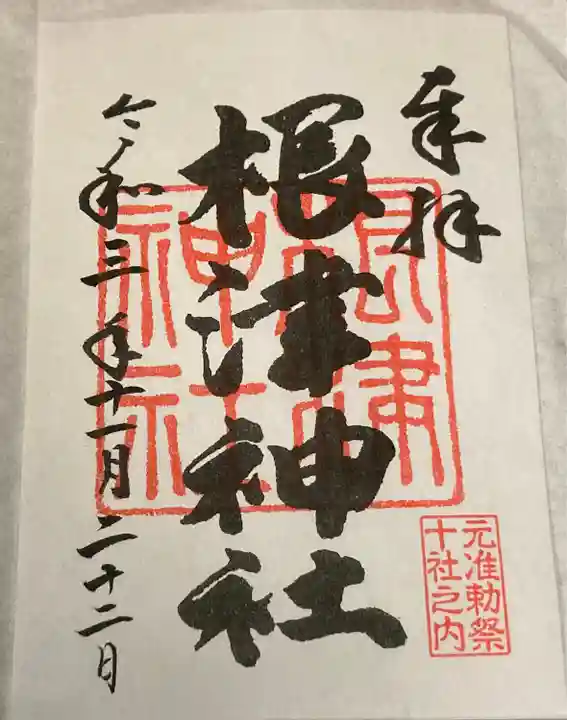 奉拝
根津神社
根津
神社
元准勅祭
十社之内
令和三年十一月二十二日